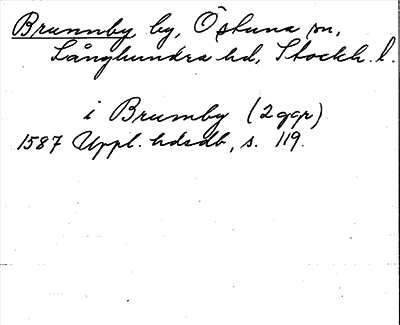 Brunnby by, Östuna sn,
Långhundra hd, Stockh. l.
i Brumby (2 ggr)
1587 Uppl. hdsdb, s. 119.